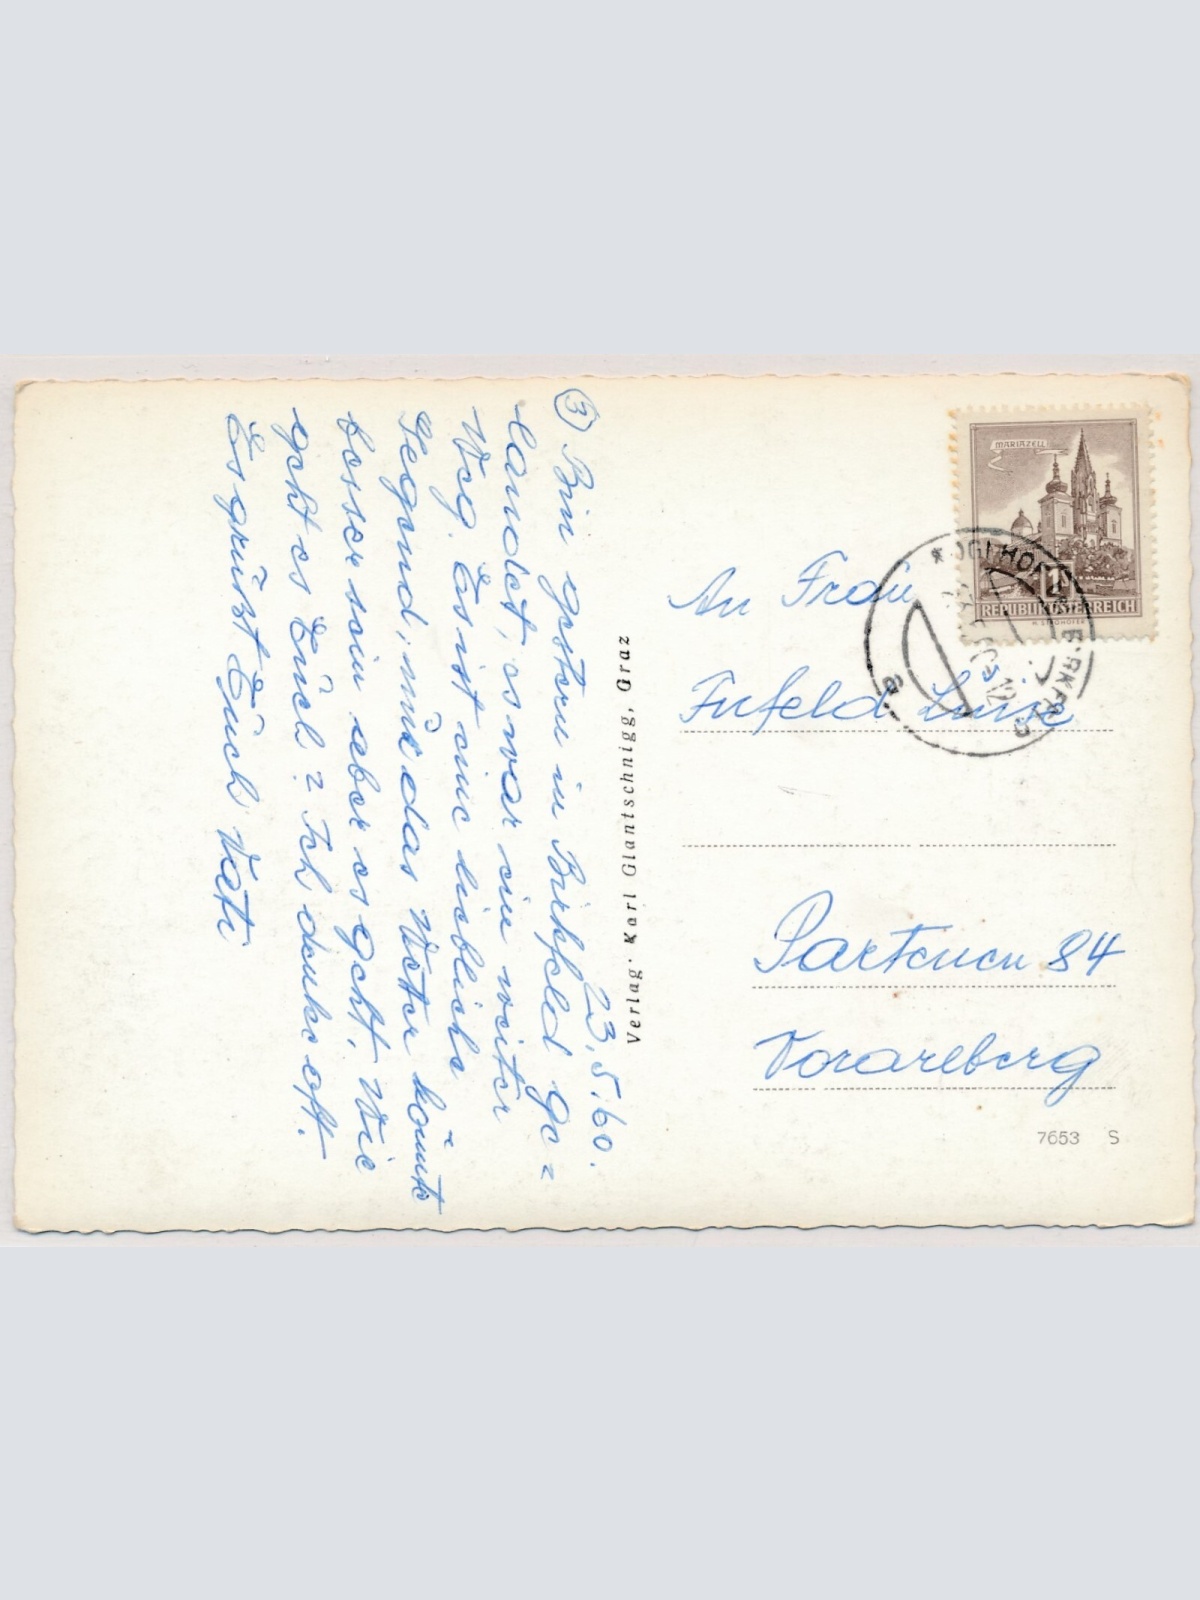 23.5.60.
③ Bin gestern in Birkfeld ge=
landet, es war ein weiter
Weg. Es ist eine liebliche
Gegend, nur das Wetter könnte
besser sein aber es geht. Wie
geht es Euch? Ich denke oft.
Es grüßt Euch Vati
Verlag. Karl Glantschnigg, Graz
MARIAZELL
1
REPUBLIK ÖSTERREICH
An Frau
Luise
Partenen 84
Vorarlberg
7653 S